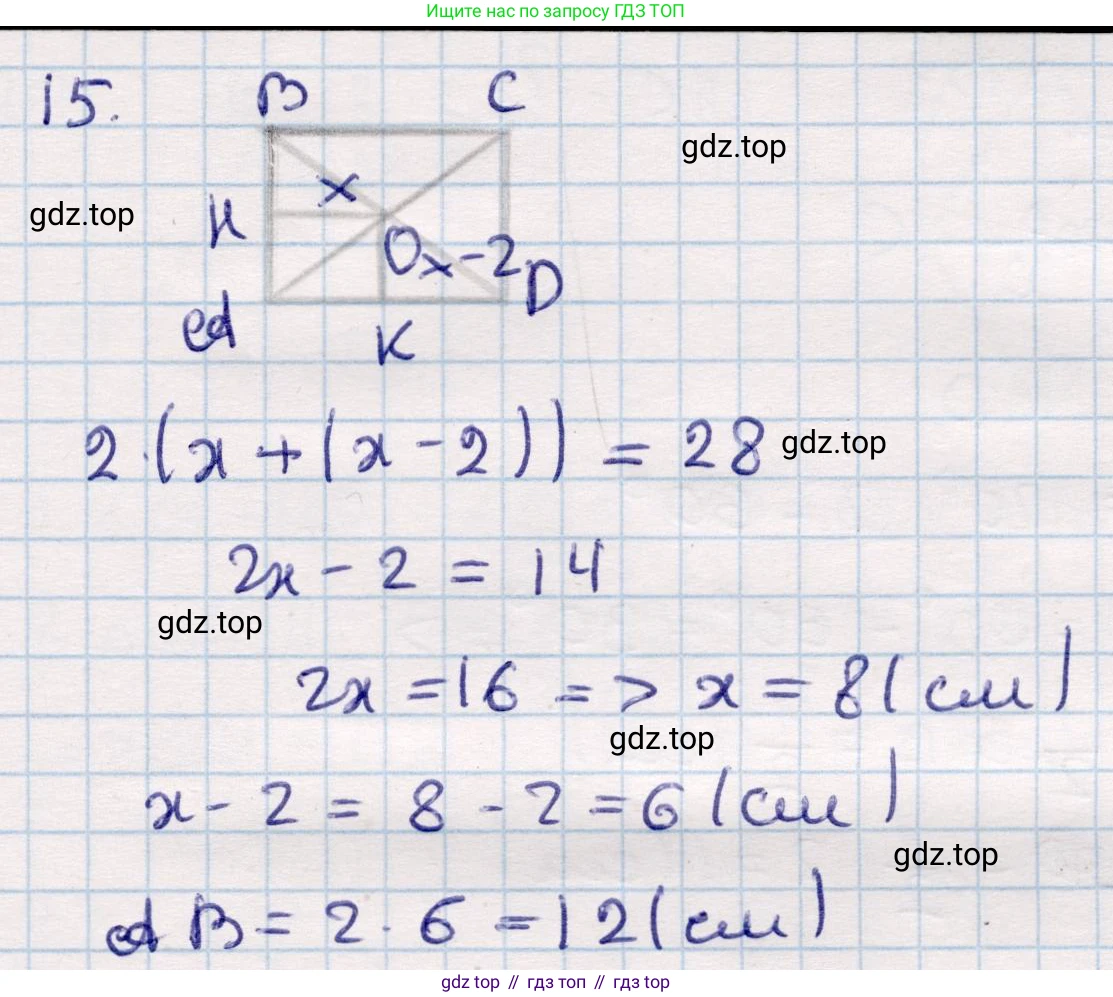 Ищите нас по запросу ГДЗ ТОП
15.
B C
gdz.top
x
gdz.top
H
O x-2 D
A
K
2·(x+(x-2))=28
gdz.top
2x-2=14
gdz.top
2x=16 => x=8(см)
gdz.top
x-2=8-2=6(см)
gdz.top
AB=2·6=12(см)
gdz top // гдз топ // gdz top